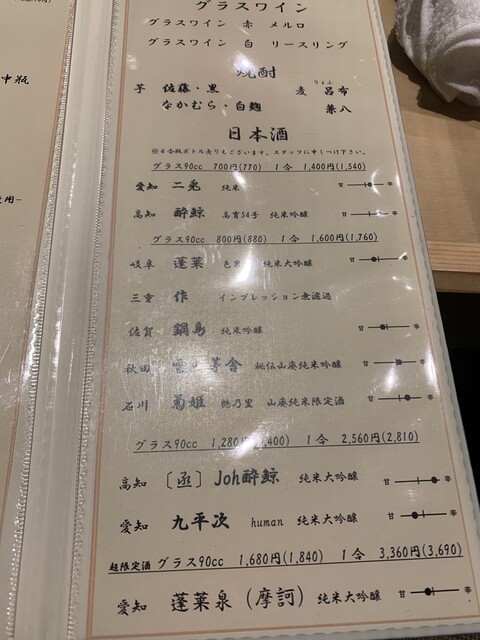 グラスワイン
グラスワイン 赤 メルロ
グラスワイン 白 リースリング
焼酎
芋 佐藤・黒 麦 呂布 りょふ
なかむら・白麹 兼八
日本酒
※4合瓶ボトル売りもございます。スタッフに申しつけ下さい。
グラス90cc 700円(770) 1合 1,400円(1,540)
愛知 二兎 純米 甘 辛
高知 酔鯨 高育54号 純米吟醸 甘 辛
グラス90cc 800円(880) 1合 1,600円(1,760)
岐阜 蓬莱 色男 純米大吟醸 甘 辛
三重 作 インプレッション無濾過
佐賀 鍋島 純米吟醸 甘 辛
秋田 雪の茅舎 秘伝山廃純米吟醸 甘 辛
石川 菊姫 鶴乃里 山廃純米限定酒 甘 辛
グラス90cc 1,280円(1,400) 1合 2,560円(2,810)
高知 [函] Joh酔鯨 純米大吟醸 甘 辛
愛知 九平次 human 純米大吟醸 甘 辛
超限定酒 グラス90cc 1,680円(1,840) 1合 3,360円(3,690)
愛知 蓬莱泉(摩訶) 純米大吟醸 甘 辛
中瓶
使用-